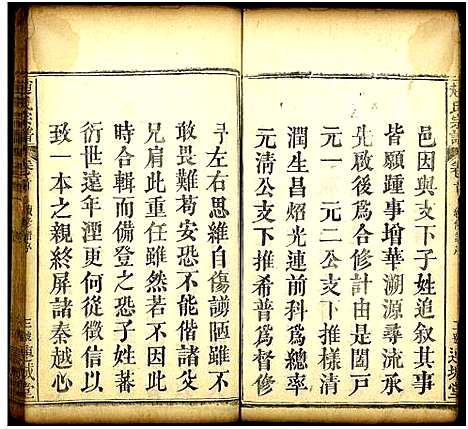 邑因與支下子姓追叙其事
皆願踵事增華溯源尋流承
先啟後為合修計由是闔戶
元一 元二公支下推樣清
諸生昌炤光連前科為總率
元清公支下推希普為督修
予左右思維自傷謭陋雖不
敢畏難苟安恐不能偕諸弟
兄肩茲重任雖然若不因此
時合輯而備登之恐子姓蕃
衍世遠年湮更何從徵信以
致一本之親終屏諸秦越心